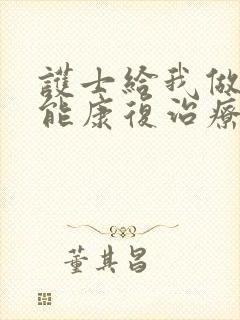 護士給我做
能康復治療
董其昌